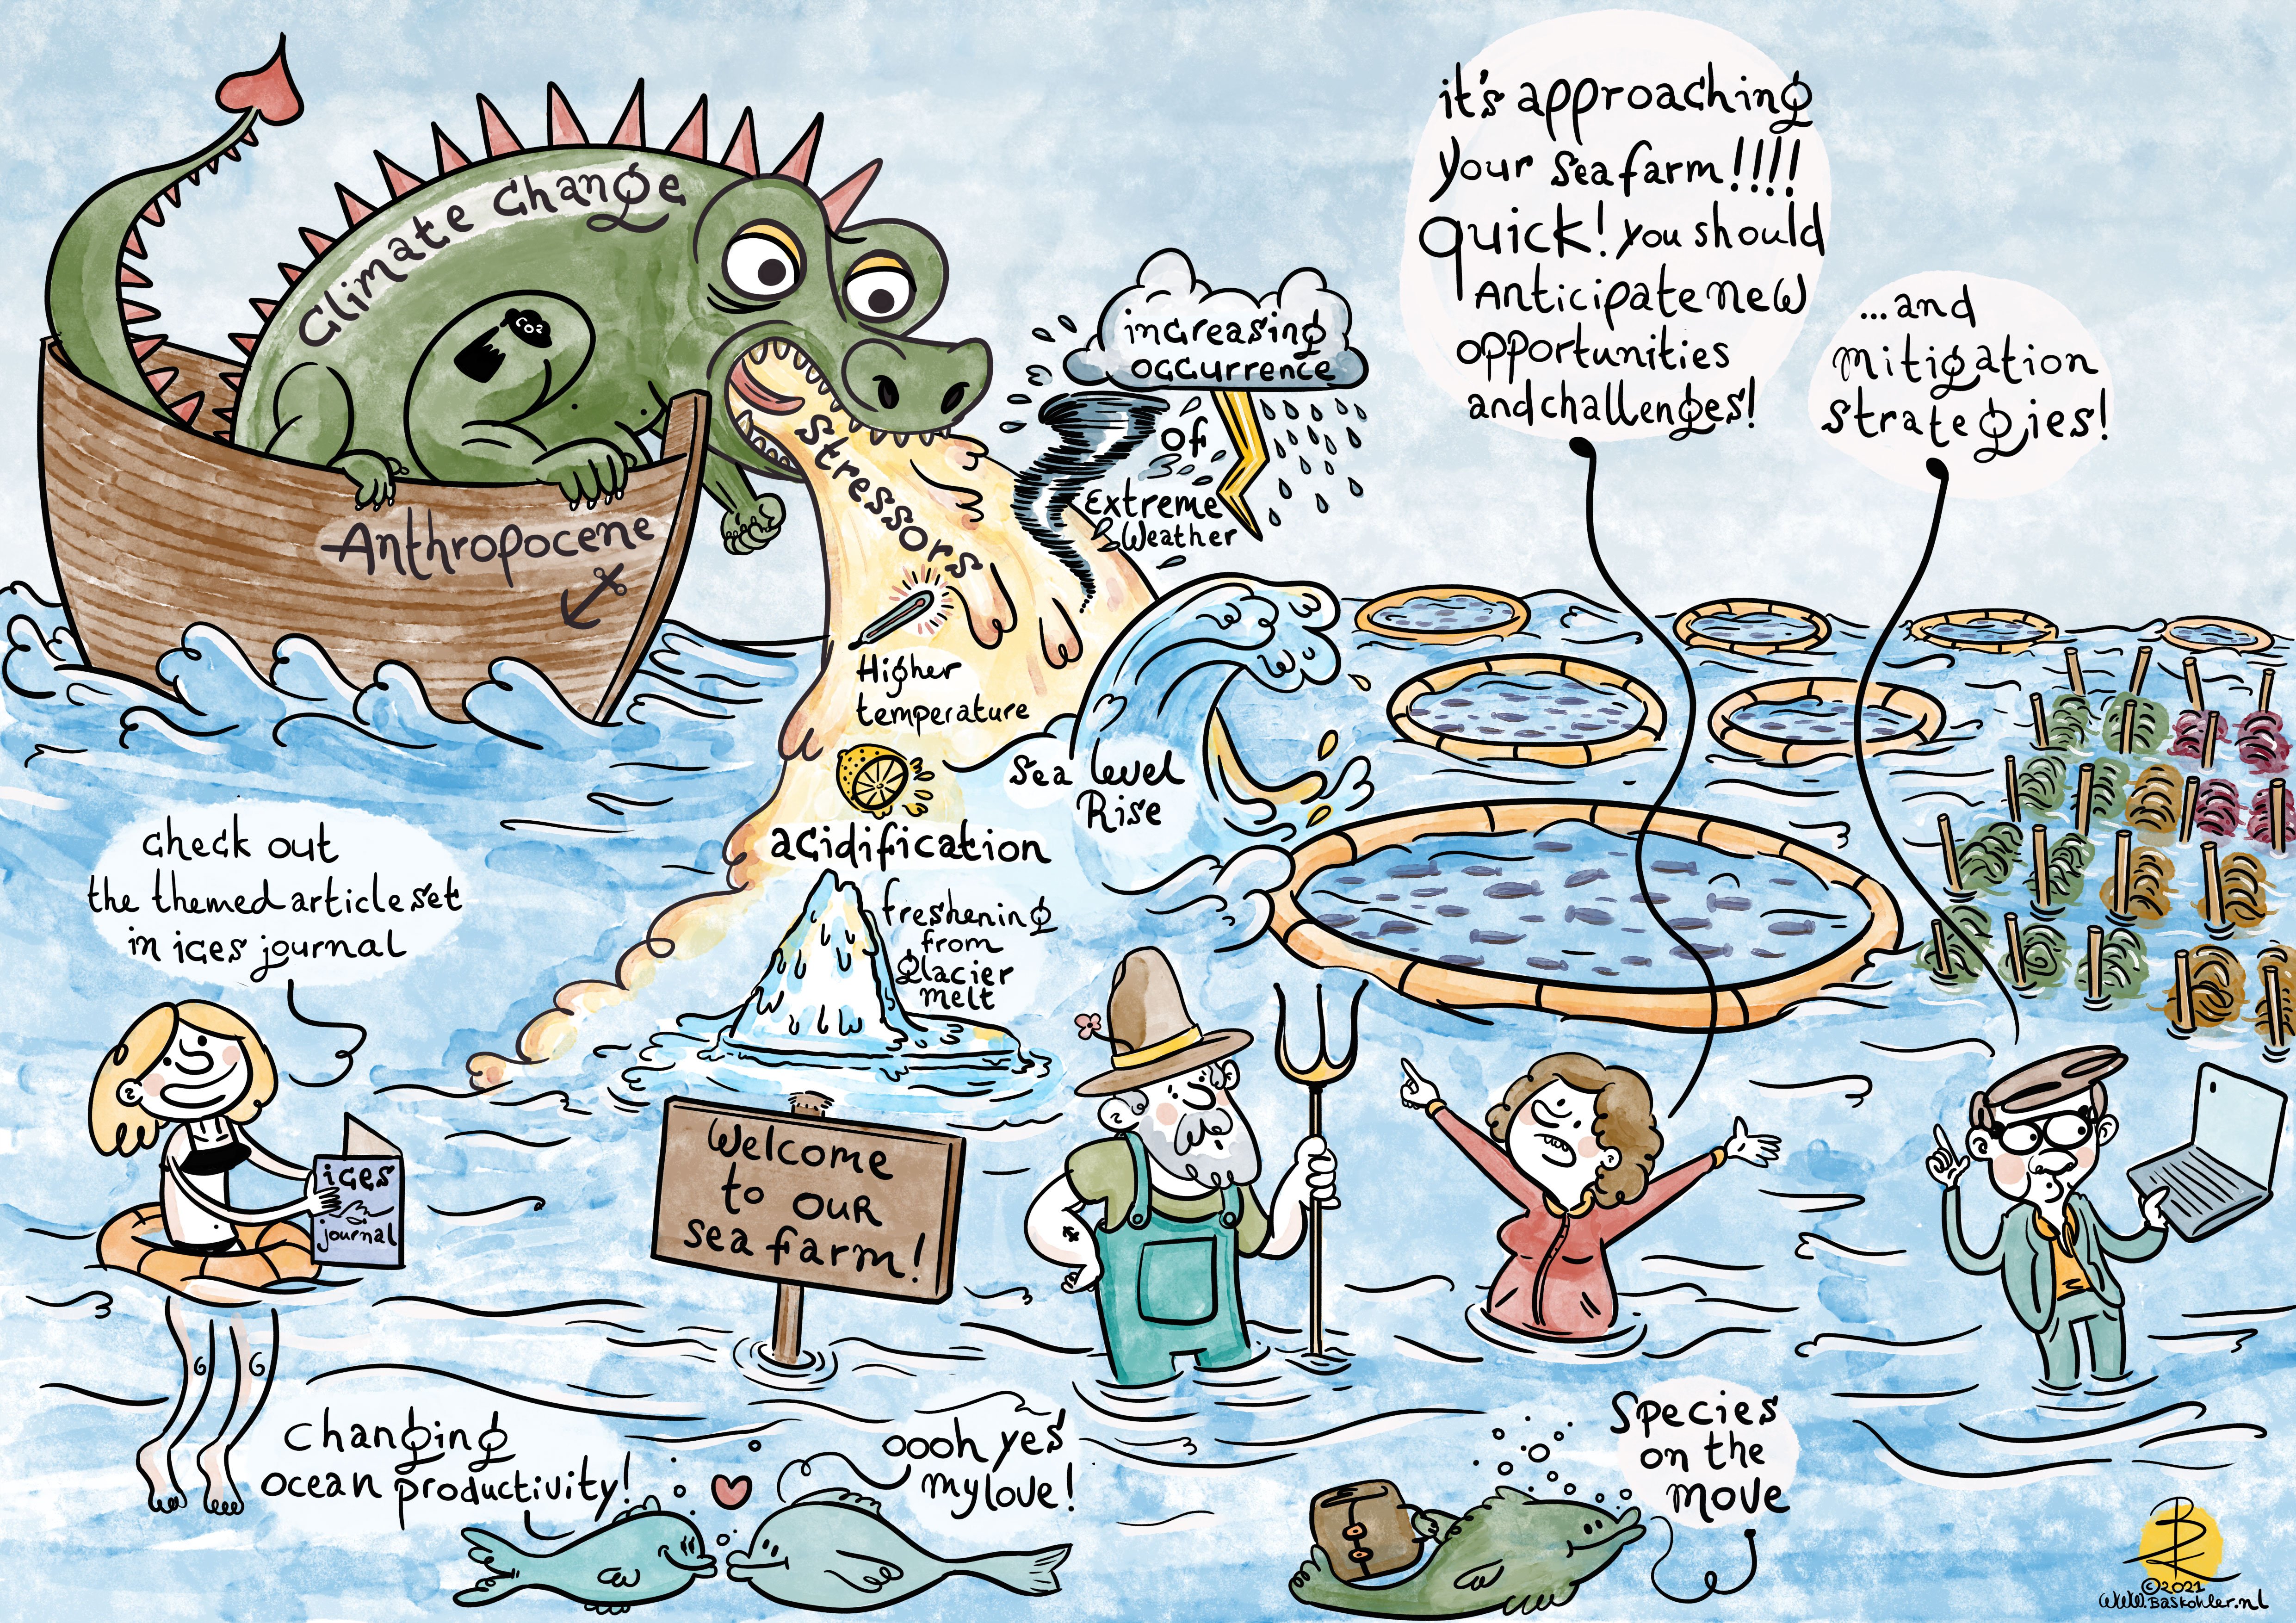 Climate Change
CO2
Anthropocene
Stressors
increasing
occurrence
of
Extreme
Weather
Higher
temperature
Sea level
Rise
acidification
freshening
from
glacier
melt
it's approaching
your sea farm!!!!
quick! you should
Anticipate new
opportunities
and challenges!
...and
mitigation
strategies!
check out
the themed article set
in ices journal
ices
journal
Welcome
to our
sea farm!
changing
ocean productivity!
oooh yes
my love!
Species
on the
move
©2021
www.Baskohler.nl